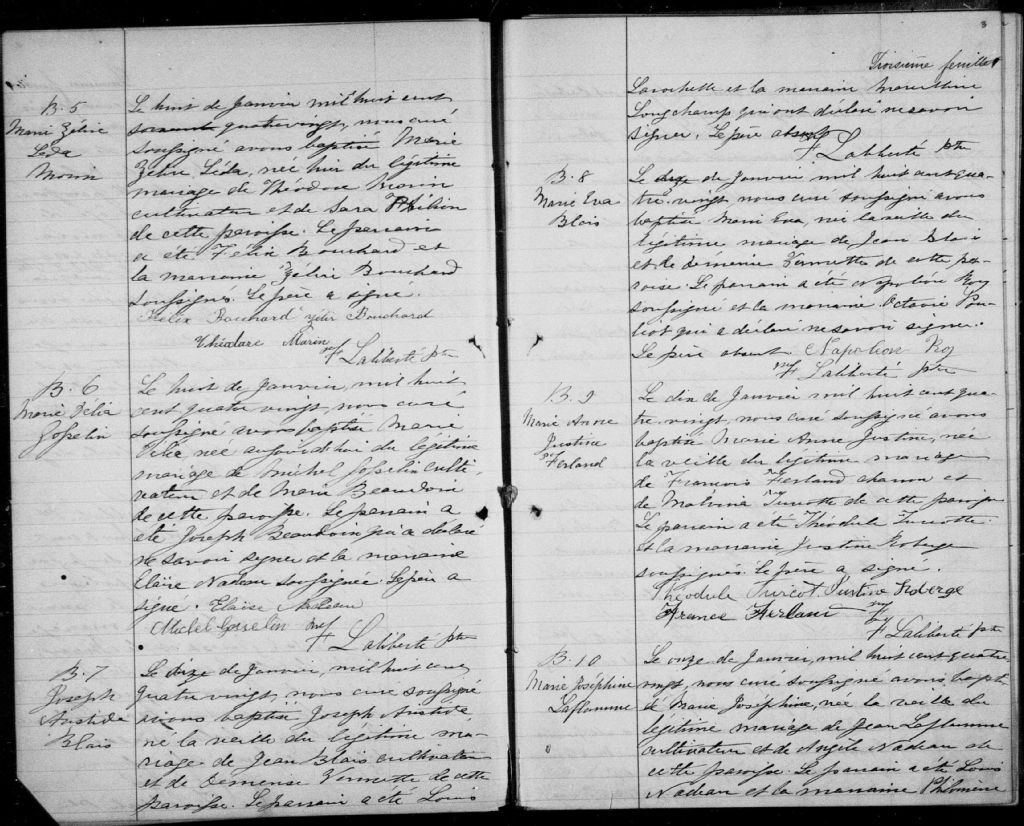 B. 5
Marie Zélire
Léda
Morin
Le huit de Janvier mil huit cent
soixante quatrevingt, nous curé
soussigné avons baptisé Marie
Zélire, Léda, née hier du légitime
mariage de Théodore Morin
cultivateur et de Sara Philion
de cette paroisse. Le parrain
a été Félix Bouchard et
la marraine Zélire Bouchard
soussignés. Le père a signé.
Félix Bouchard Zélir Bouchard
Théodore Morin
F Laliberté ptre
B. 6
Marie Délia
Gosselin
Le huit de Janvier, mil huit
cent quatre vingt, nous curé
soussigné avons baptisé Marie
Délia née aujourd'hui du légitime
mariage de Michel Gosselin culti-
vateur et de Marie Beaudoin
de cette paroisse. Le parrain a
été Joseph Beaudoin qui a déclaré
ne savoir signer et la marraine
Claire Nadeau soussignée. Le père a
signé. Elaise Nadeau
Michel Gosselin
F Laliberté ptre
B. 7
Joseph
Aristide
Blais
Le dize de Janvier, mil huit cent
quatre vingt, nous curé soussigné
avons baptisé Joseph Aristide,
né la veille du légitime ma-
riage de Jean Blais cultivateur
et de Démerise Vermette de cette
paroisse. Le parrain a été Louis
3
Troisième feuillet
Larochette et la marraine
Longchamp qui ont déclaré ne savoir
signer. Le père absent
F Laliberté ptre
B. 8
Marie Eva
Blais
Le dize de Janvier mil huit cent qua-
tre-vingt, nous curé soussigné avons
baptisé Marie Eva, née la veille du
légitime mariage de Jean Blais
et de Démerise Vermette de cette pa-
roisse. Le parrain a été Napoléon Roy
soussigné et la marraine Octavie Pou-
liot qui a déclaré ne savoir signer.
Le père absent Napoléon Roy
F Laliberté ptre
B. 9
Marie Anne
Justine
Ferland
Le dix de Janvier mil huit cent qua-
tre-vingt, nous curé soussigné avons
baptisé Marie Anne Justine, née
la veille du légitime mariage
de François Ferland charron et
de Malvina Turcotte de cette paroisse
Le parrain a été Théodule Turcotte
et la marraine Justine Roberge
soussignés. Le père a signé.
Théodule Turcot Justine Roberge
France Ferland
F Laliberté ptre
B. 10
Marie Joséphine
Laflamme
Le onze de Janvier, mil huit cent quatre
vingt, nous curé soussigné avons bapti-
sé Marie Joséphine, née la veille du
légitime mariage de Jean Laflamme
cultivateur et de Angèle Nadeau de
cette paroisse. Le parrain a été Louis
Nadeau et la marraine Philomène